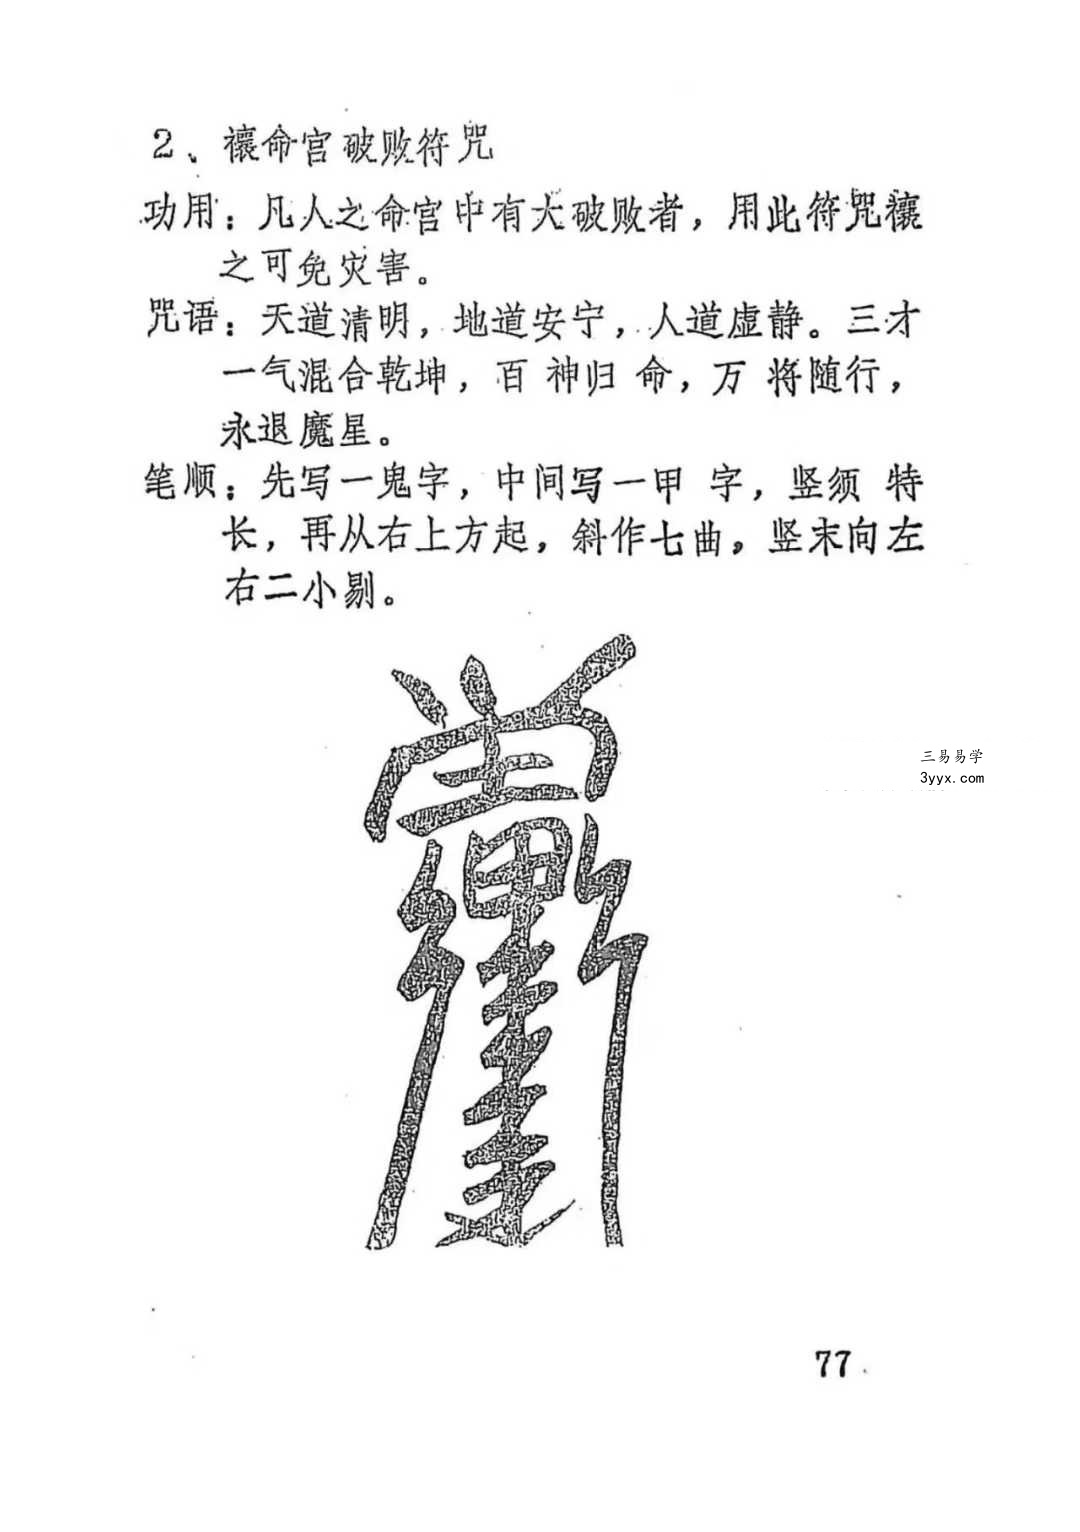 2、禳命宫破败符咒
功用：凡人之命宫中有大破败者，用此符咒禳
之可免灾害。
咒语：天道清明，地道安宁，人道虚静。三才
一气混合乾坤，百神归命，万将随行，
永退魔星。
笔顺：先写一鬼字，中间写一甲字，竖须特
长，再从右上方起，斜作七曲，竖末向左
右二小剔。
三易易学
3yyx.com
77